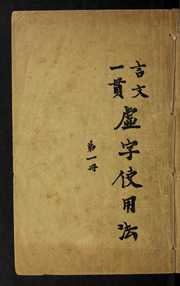 言文
一貫
虛字使用法
第一冊